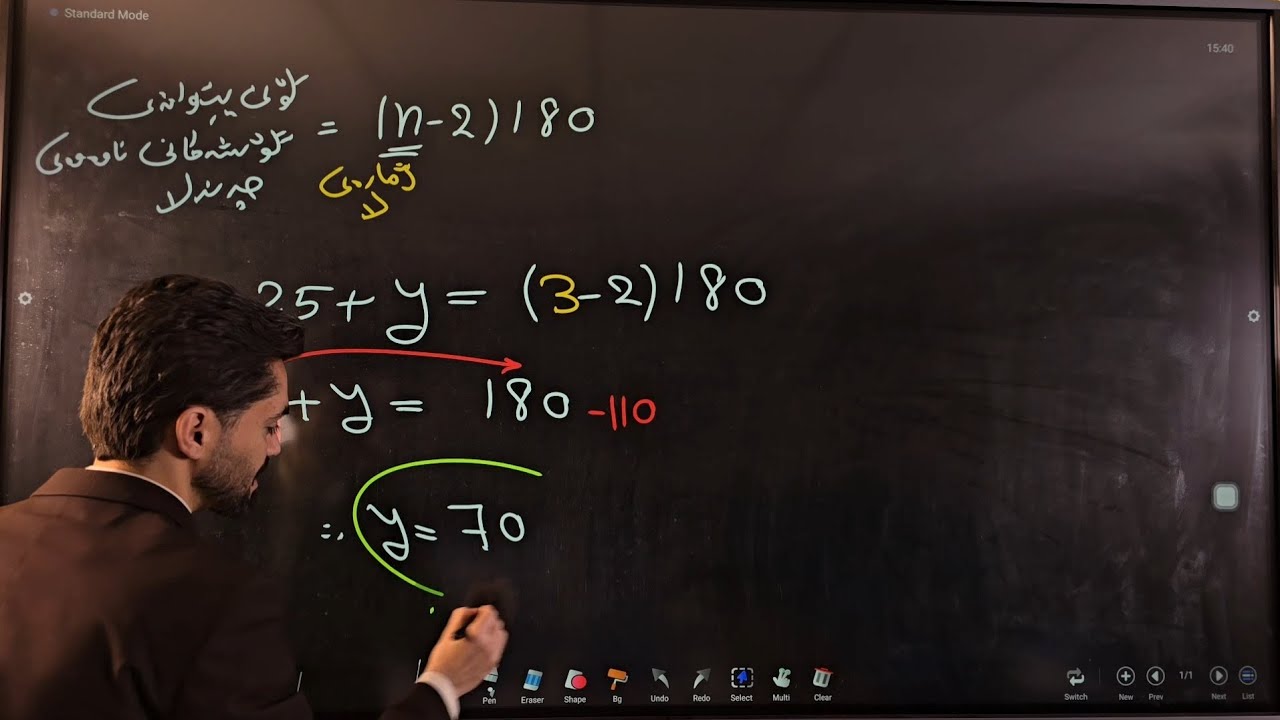 Standard Mode
15:40
کۆی پێوانەی
گۆشەکانی ناوەوەی
چەند لا
= (n-2)180
ژمارەی
لا
25 + y = (3-2)180
+ y = 180 -110
∴ y = 70
Pen Eraser Shape Bg Undo Redo Select Multi Clear
Switch New Prev 1/1 Next List